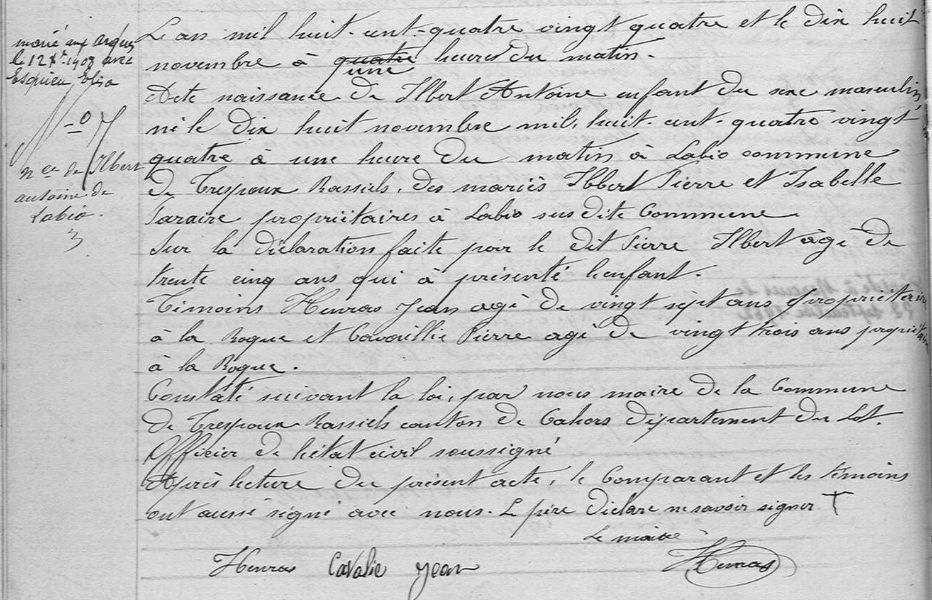 marié aux Arques
le 12 1908 avec
Esquieu Elisa
n° 7
nce de Ilbert
antoine de
Labio.
3
L'an mil huit-cent-quatre vingt quatre et le dix huit
novembre à quatre une heures du matin.
Acte naissance de Ilbert Antoine enfant du sexe masculin
né le dix huit novembre mil, huit-cent-quatre vingt
quatre à une heure du matin à Labio commune
de Trespoux Rassiels, des mariés Ilbert Pierre et Isabelle
Taraire propriétaires à Labio susdite Commune
Sur la déclaration faite par le dit Pierre Ilbert âgé de
trente cinq ans qui à présenté l'enfant.
Témoins Henras Jean agé de vingt sept ans propriétaire
à la Roque et Cavaillié Pierre agé de vingt trois ans propriétaire
à la Roque.
Constaté suivant la loi, par nous maire de la Commune
de Trespoux Rassiels canton de Cahors département du Lot.
Officier de l'état civil soussigné
Après lecture du présent acte, le Comparant et les témoins
ont aussi signé avec nous. L père déclare ne savoir signer †
Le maire
Henras Cavalie Jean Henras